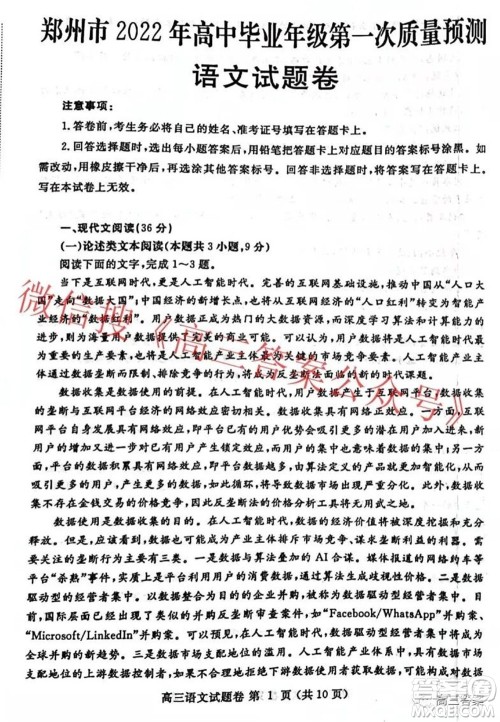 郑州市2022年高中毕业年级第一次质量预测
语文试题卷
注意事项：
1.答卷前,考生务必将自己的姓名、准考证号填写在答题卡上。
2.回答选择题时,选出每小题答案后,用铅笔把答题卡上对应题目的答案标号涂黑。如
需改动,用橡皮擦干净后,再选涂其它答案标号。回答非选择题时,将答案写在答题卡上。写
在本试卷上无效。
一、现代文阅读(36分)
(一)论述类文本阅读(本题共3小题,9分)
阅读下面的文字,完成1～3题。
当下是互联网时代,更是人工智能时代。完善的互联网基础设施,推动中国从“人口大
国”走向“数据大国”;中国经济的新增长点,也将从互联网经济的“人口红利”转变为智能产
业经济的“数据红利”。用户数据正成为热门的大数据资源,而深度学习算法和计算能力的
进步,则为人工智能将用户数据提供了完美的商业可能。数据将是人工智能时代最
为重要的生产要素,也将是人工智能产业主体最为关键的市场竞争要素。人工智能产业主体
通过数据垄断而限制、排除竞争的行为,将成为反垄断法面临的新的时代课题。
数据收集是数据使用的前提。在人工智能时代,用户数据产生于互联网平台,数据收集
的垄断与互联网平台经济的网络效应密切相关。数据收集具有网络正效应。一方面,互联
网平台自身发展具有网络效应,即用户越多,平台价值越大,从而吸引更多的潜在用户,新用
户的增加又进一步对既有用户产生锁定效应,而用户的增长意味着用户数据的增长。另一方
面,平台数据累积具有网络效应,即平台数据越多,由人工智能算法决定的服务越优,从而吸
引更多的用户,产生更多的数据,如此循环,将产生显著的数据壁垒效应。此外,数据收
集不存在金钱交易的价格竞争,因此反垄断法的价格分析工具将无用武之地。
数据使用是数据收集的目的。在人工智能时代,数据的经济价值将被深度挖掘和充分
释放。但是,应该看到,数据的使用可能产生排除、限制市场竞争,谋求垄断利益的问题。需
要关注的垄断行为主要有三类。一是数据与算法叠加的AI合谋。媒体报道的网络约车等
平台“杀熟”事件,实质上是平台利用用户的消费数据,通过算法生成歧视性价格。二是数据
驱动型的经营者集中。经营者以数据整合为目的的企业并购,将被认为是数据驱动型的经营者集中。目
前,国际层面已经出现了类似的并购反垄断审查案件,如“Facebook/WhatsApp”并购案、
“Microsoft/LinkedIn”并购案。可以预见,在人工智能时代,数据驱动型的经营者集中将成为
全球并购的新趋势。三是数据市场支配地位的滥用。人工智能产业的发展,使得具有数据
支配地位的上游数据控制者,如果不合理地拒绝下游数据使用者使用数据,将可能导致下游
高三语文试题卷 第1页(共10页)
微信搜《高三答案公众号》
高三答案